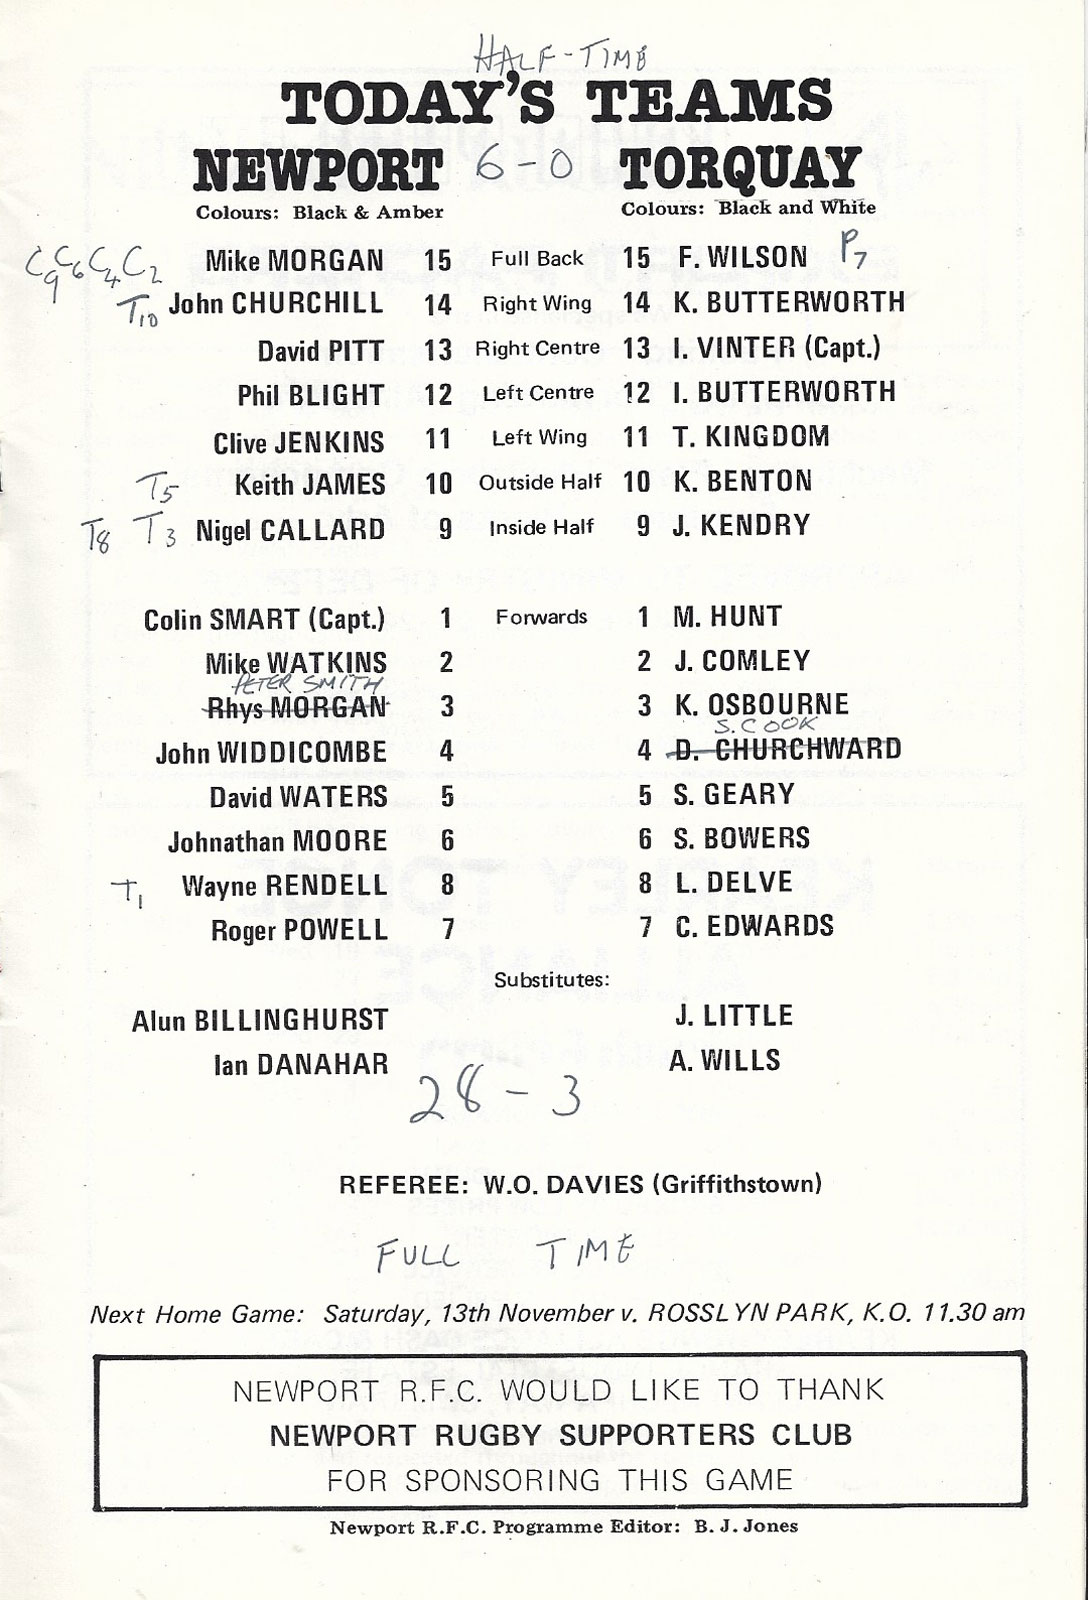 HALF-TIME
TODAY'S TEAMS
NEWPORT 6-0 TORQUAY
Colours: Black & Amber Colours: Black and White
C9 C6 C4 C2 Mike MORGAN 15 Full Back 15 F. WILSON P7
T10 John CHURCHILL 14 Right Wing 14 K. BUTTERWORTH
David PITT 13 Right Centre 13 I. VINTER (Capt.)
Phil BLIGHT 12 Left Centre 12 I. BUTTERWORTH
Clive JENKINS 11 Left Wing 11 T. KINGDOM
T5 Keith JAMES 10 Outside Half 10 K. BENTON
T8 T3 Nigel CALLARD 9 Inside Half 9 J. KENDRY
Colin SMART (Capt.) 1 Forwards 1 M. HUNT
Mike WATKINS 2 2 J. COMLEY
PETER SMITH
Rhys MORGAN 3 3 K. OSBOURNE
S. COOK
John WIDDICOMBE 4 4 D. CHURCHWARD
David WATERS 5 5 S. GEARY
Johnathan MOORE 6 6 S. BOWERS
T1 Wayne RENDELL 8 8 L. DELVE
Roger POWELL 7 7 C. EDWARDS
Substitutes:
Alun BILLINGHURST J. LITTLE
Ian DANAHAR A. WILLS
28 - 3
REFEREE: W.O. DAVIES (Griffithstown)
FULL TIME
Next Home Game: Saturday, 13th November v. ROSSLYN PARK, K.O. 11.30 am
NEWPORT R.F.C. WOULD LIKE TO THANK
NEWPORT RUGBY SUPPORTERS CLUB
FOR SPONSORING THIS GAME
Newport R.F.C. Programme Editor: B. J. Jones